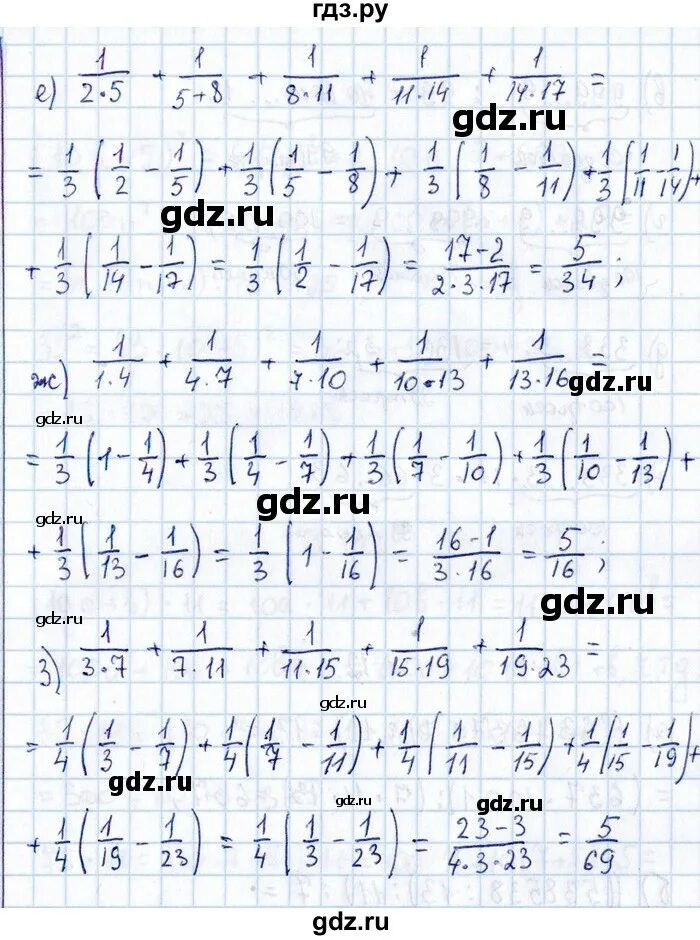 гдз.ру
е) 1/(2·5) + 1/(5+8) + 1/(8·11) + 1/(11·14) + 1/(14·17) =
= 1/3 (1/2 − 1/5) + 1/3 (1/5 − 1/8) + 1/3 (1/8 − 1/11) + 1/3 (1/11 − 1/14) +
gdz.ru
gdz.ru
+ 1/3 (1/14 − 1/17) = 1/3 (1/2 − 1/17) = (17−2)/(2·3·17) = 5/34 ;
ж) 1/(1·4) + 1/(4·7) + 1/(7·10) + 1/(10·13) + 1/(13·16) =
gdz.ru
gdz.ru
= 1/3 (1 − 1/4) + 1/3 (1/4 − 1/7) + 1/3 (1/7 − 1/10) + 1/3 (1/10 − 1/13) +
gdz.ru
gdz.ru
+ 1/3 (1/13 − 1/16) = 1/3 (1 − 1/16) = (16−1)/(3·16) = 5/16 ;
gdz.ru
gdz.ru
з) 1/(3·7) + 1/(7·11) + 1/(11·15) + 1/(15·19) + 1/(19·23) =
gdz.ru
= 1/4 (1/3 − 1/7) + 1/4 (1/7 − 1/11) + 1/4 (1/11 − 1/15) + 1/4 (1/15 − 1/19) +
gdz.ru
gdz.ru
gdz.ru
+ 1/4 (1/19 − 1/23) = 1/4 (1/3 − 1/23) = (23−3)/(4·3·23) = 5/69
gdz.ru